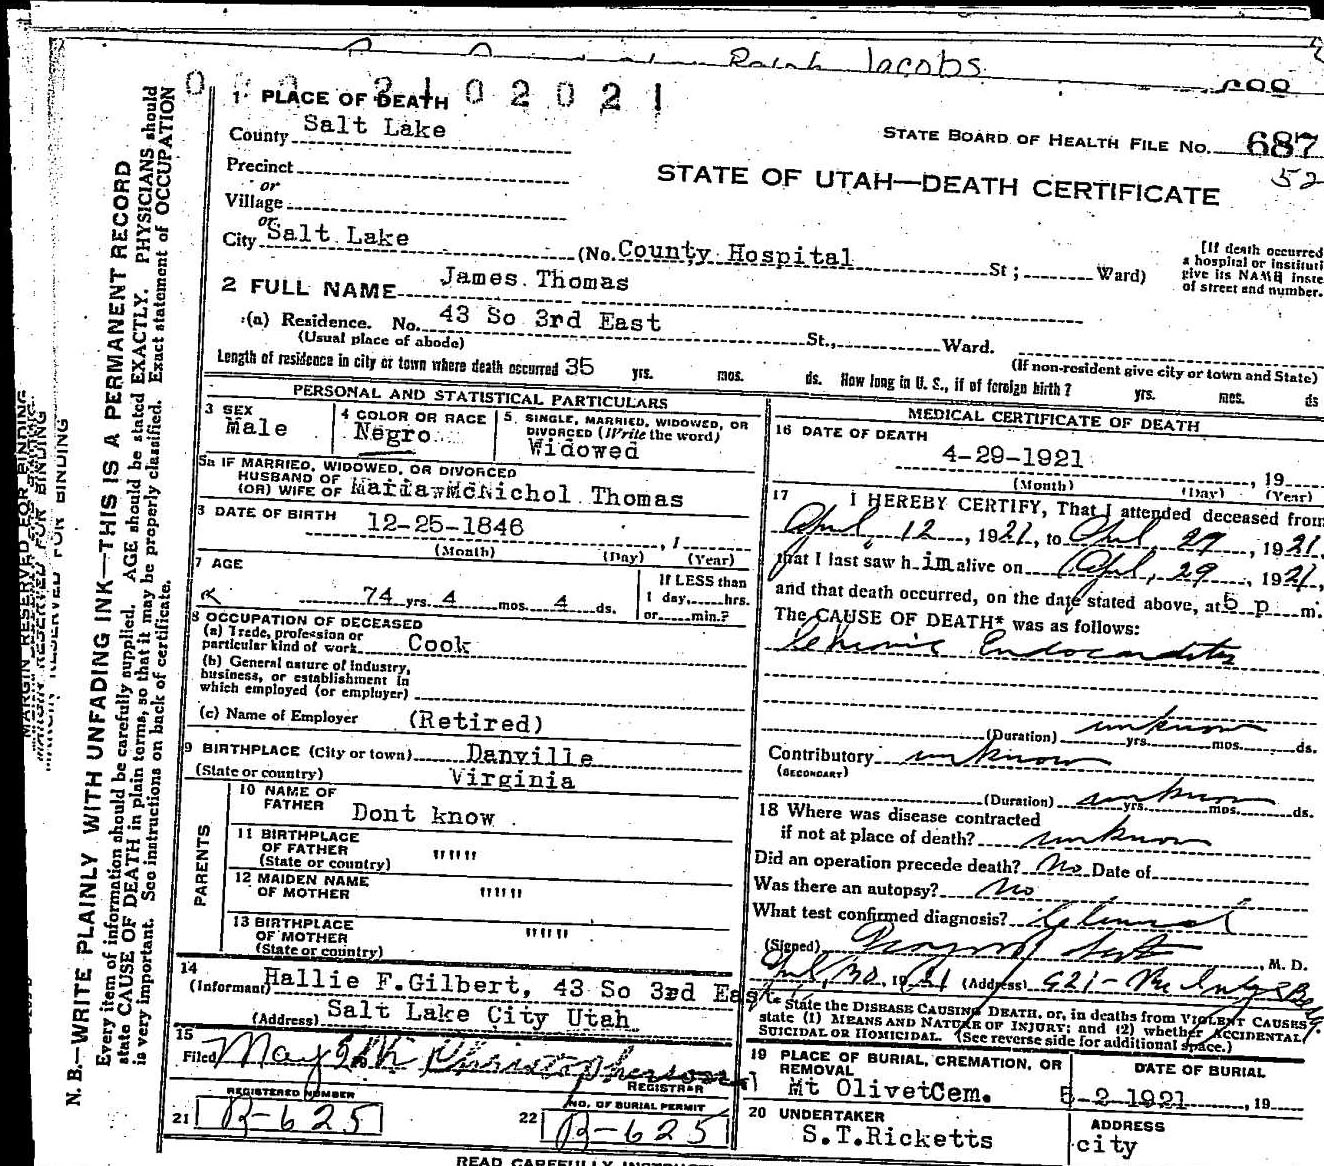 Ralph Jacobs
2 1 0 2 0 2 1
1 PLACE OF DEATH
County Salt Lake
STATE BOARD OF HEALTH FILE No. 687
52
Precinct
or
Village
or
STATE OF UTAH—DEATH CERTIFICATE
City Salt Lake (No. County Hospital St; Ward)
[If death occurred
a hospital or instituti
give its NAME inste
of street and number.
2 FULL NAME James Thomas
(a) Residence. No. 43 So 3rd East St., Ward.
(Usual place of abode) (If non-resident give city or town and State)
Length of residence in city or town where death occurred 35 yrs. mos. ds. How long in U. S., if of foreign birth? yrs. mos. ds
PERSONAL AND STATISTICAL PARTICULARS
3 SEX
Male
4 COLOR OR RACE
Negro
5. SINGLE, MARRIED, WIDOWED, OR
DIVORCED (Write the word)
Widowed
5a IF MARRIED, WIDOWED, OR DIVORCED
HUSBAND OF
(OR) WIFE OF Maria McNichol Thomas
DATE OF BIRTH 12-25-1846, 1
(Month) (Day) (Year)
7 AGE
74 yrs. 4 mos. 4 ds.
If LESS than
1 day, hrs.
or min.?
8 OCCUPATION OF DECEASED
(a) Trade, profession or
particular kind of work Cook
(b) General nature of industry,
business, or establishment in
which employed (or employer)
(c) Name of Employer (Retired)
9 BIRTHPLACE (City or town) Danville
(State or country) Virginia
PARENTS
10 NAME OF
FATHER Dont know
11 BIRTHPLACE
OF FATHER """
(State or country)
12 MAIDEN NAME
OF MOTHER """
13 BIRTHPLACE
OF MOTHER """
(State or country)
14
(Informant) Hallie F.Gilbert, 43 So 3rd East
(Address) Salt Lake City Utah
15
Filed May
REGISTRAR
REGISTERED NUMBER
21 B-625
NO. OF BURIAL PERMIT
22 B-625
MEDICAL CERTIFICATE OF DEATH
16 DATE OF DEATH
4-29-1921, 19
(Month) (Day) (Year)
17 I HEREBY CERTIFY, That I attended deceased from
April, 12, 1921, to April, 29, 1921,
that I last saw h im alive on April, 29, 1921,
and that death occurred, on the date stated above, at 5 p m.
The CAUSE OF DEATH* was as follows:
Chronic Endocarditis
(Duration) unknown yrs. mos. ds.
Contributory unknown
(SECONDARY)
(Duration) unknown yrs. mos. ds.
18 Where was disease contracted
if not at place of death? unknown
Did an operation precede death? No Date of
Was there an autopsy? No
What test confirmed diagnosis? Clinical
(Signed) M. D.
April, 30, 1921 (Address) 921-
* State the DISEASE CAUSING DEATH, or, in deaths from VIOLENT CAUSES
state (1) MEANS AND NATURE OF INJURY; and (2) whether ACCIDENTAL,
SUICIDAL OR HOMICIDAL. (See reverse side for additional space.)
19 PLACE OF BURIAL, CREMATION, OR
REMOVAL
Mt OlivetCem.
DATE OF BURIAL
5-2-1921, 19
20 UNDERTAKER
S.T.Ricketts
ADDRESS
city
N. B.—WRITE PLAINLY WITH UNFADING INK—THIS IS A PERMANENT RECORD
Every item of information should be carefully supplied. AGE should be stated EXACTLY. PHYSICIANS should
state CAUSE OF DEATH in plain terms, so that it may be properly classified. Exact statement of OCCUPATION
is very important. See instructions on back of certificate.
MARGIN RESERVED FOR BINDING